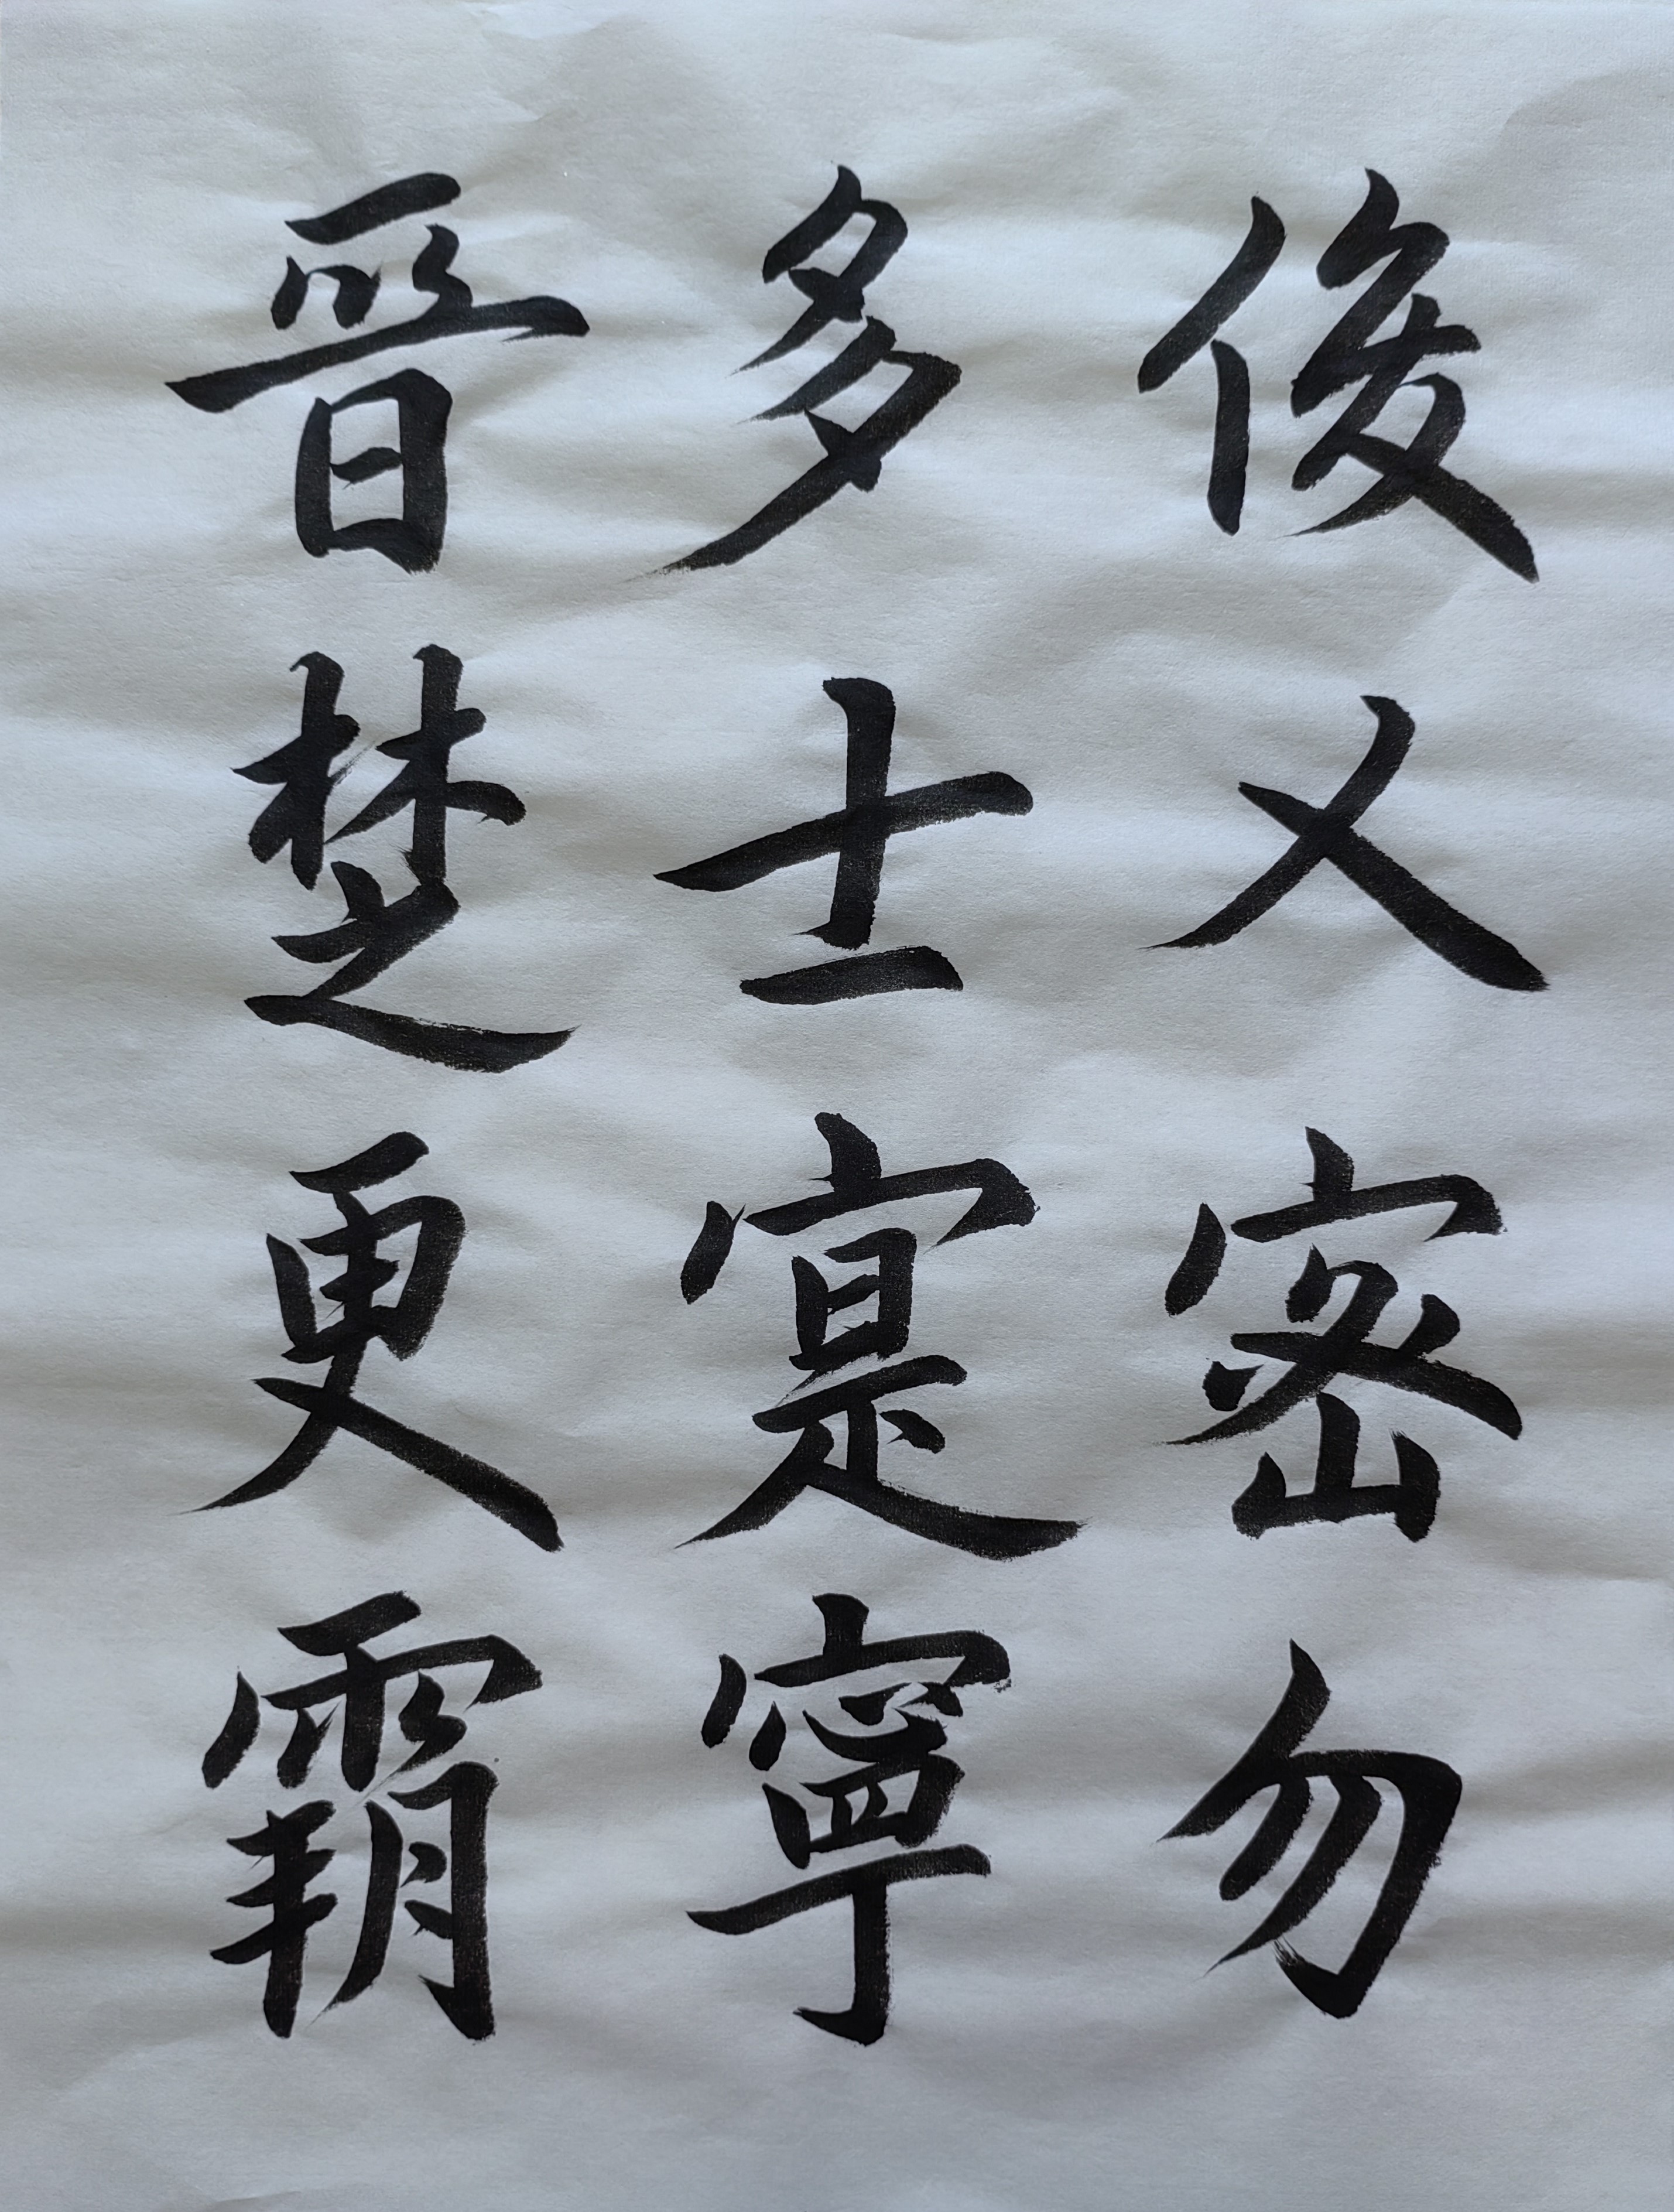 俊乂密勿
多士寔寧
晉楚更霸